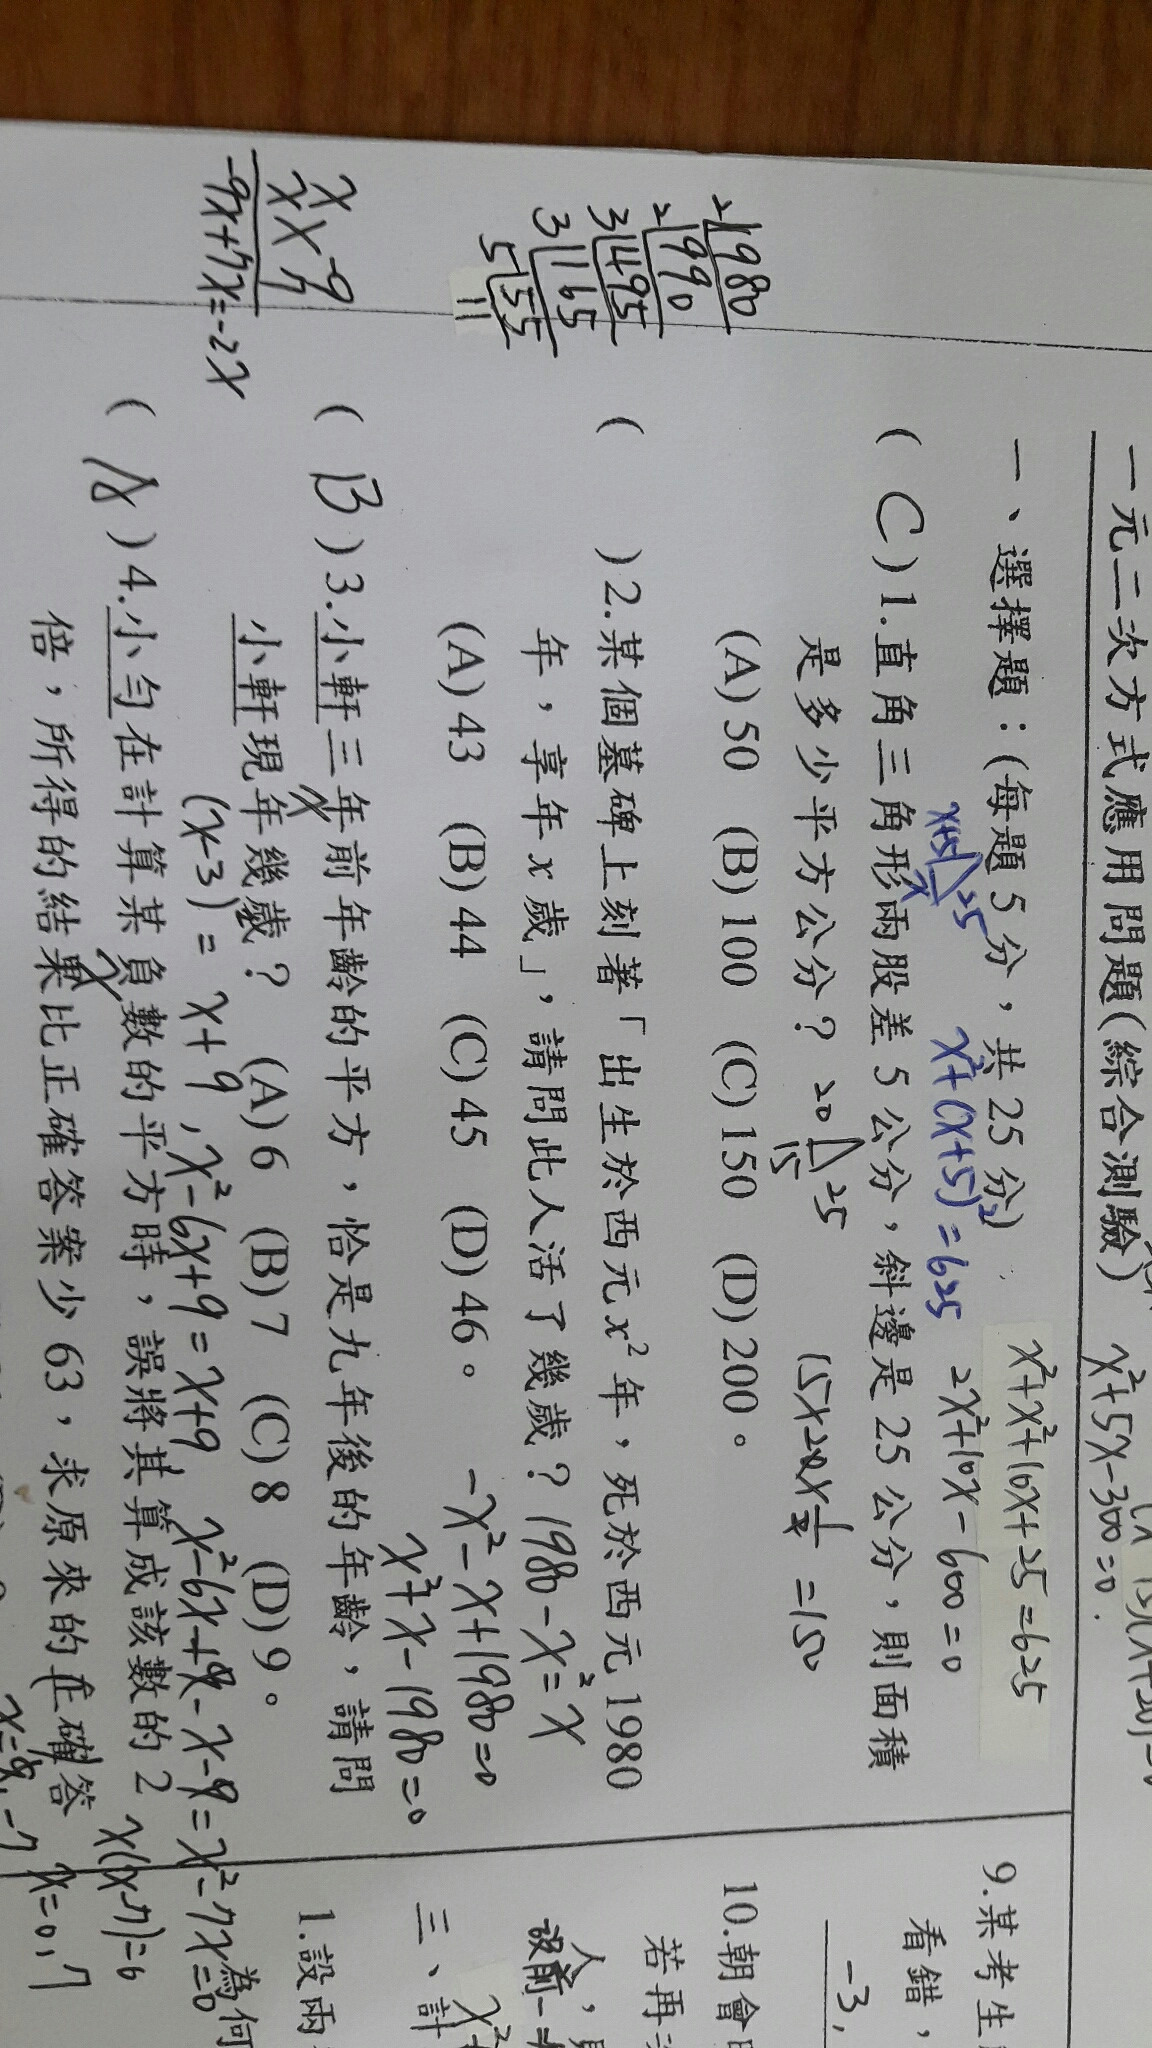 一元二次方式應用問題(綜合測驗)
x²+5x-300=0.
一、選擇題：(每題 5 分，共 25 分)
x²+x²+10x+25=625
x+5 25 x
x²+(x+5)²=625
2x²+10x-600=0
( C )1.直角三角形兩股差 5 公分，斜邊是 25 公分，則面積
是多少平方公分？
20 25 15
15×20×½ =150
(A)50 (B)100 (C)150 (D)200。
( )2.某個墓碑上刻著「出生於西元 x² 年，死於西元 1980
年，享年 x 歲」，請問此人活了幾歲？
1980-x²=x
(A)43 (B)44 (C)45 (D)46。
-x²-x+1980=0
x²+x-1980=0
2 1980
2 990
3 495
3 165
5 55
11
( B )3.小軒三年前年齡的平方，恰是九年後的年齡，請問
x
小軒現年幾歲？ (A)6 (B)7 (C)8 (D)9。
(x-3)= x+9 , x²-6x+9=x+9
x²-7x=0
x(x-7)=0
x=0,7
( A )4.小勻在計算某負數的平方時，誤將其算成該數的 2
x
倍，所得的結果比正確答案少 63，求原來的正確答
為何
x -9
x 7
-9x+7x=-2x
9.某考生
看錯，
-3,
10.朝會
若再
人，
三、計
1.設兩